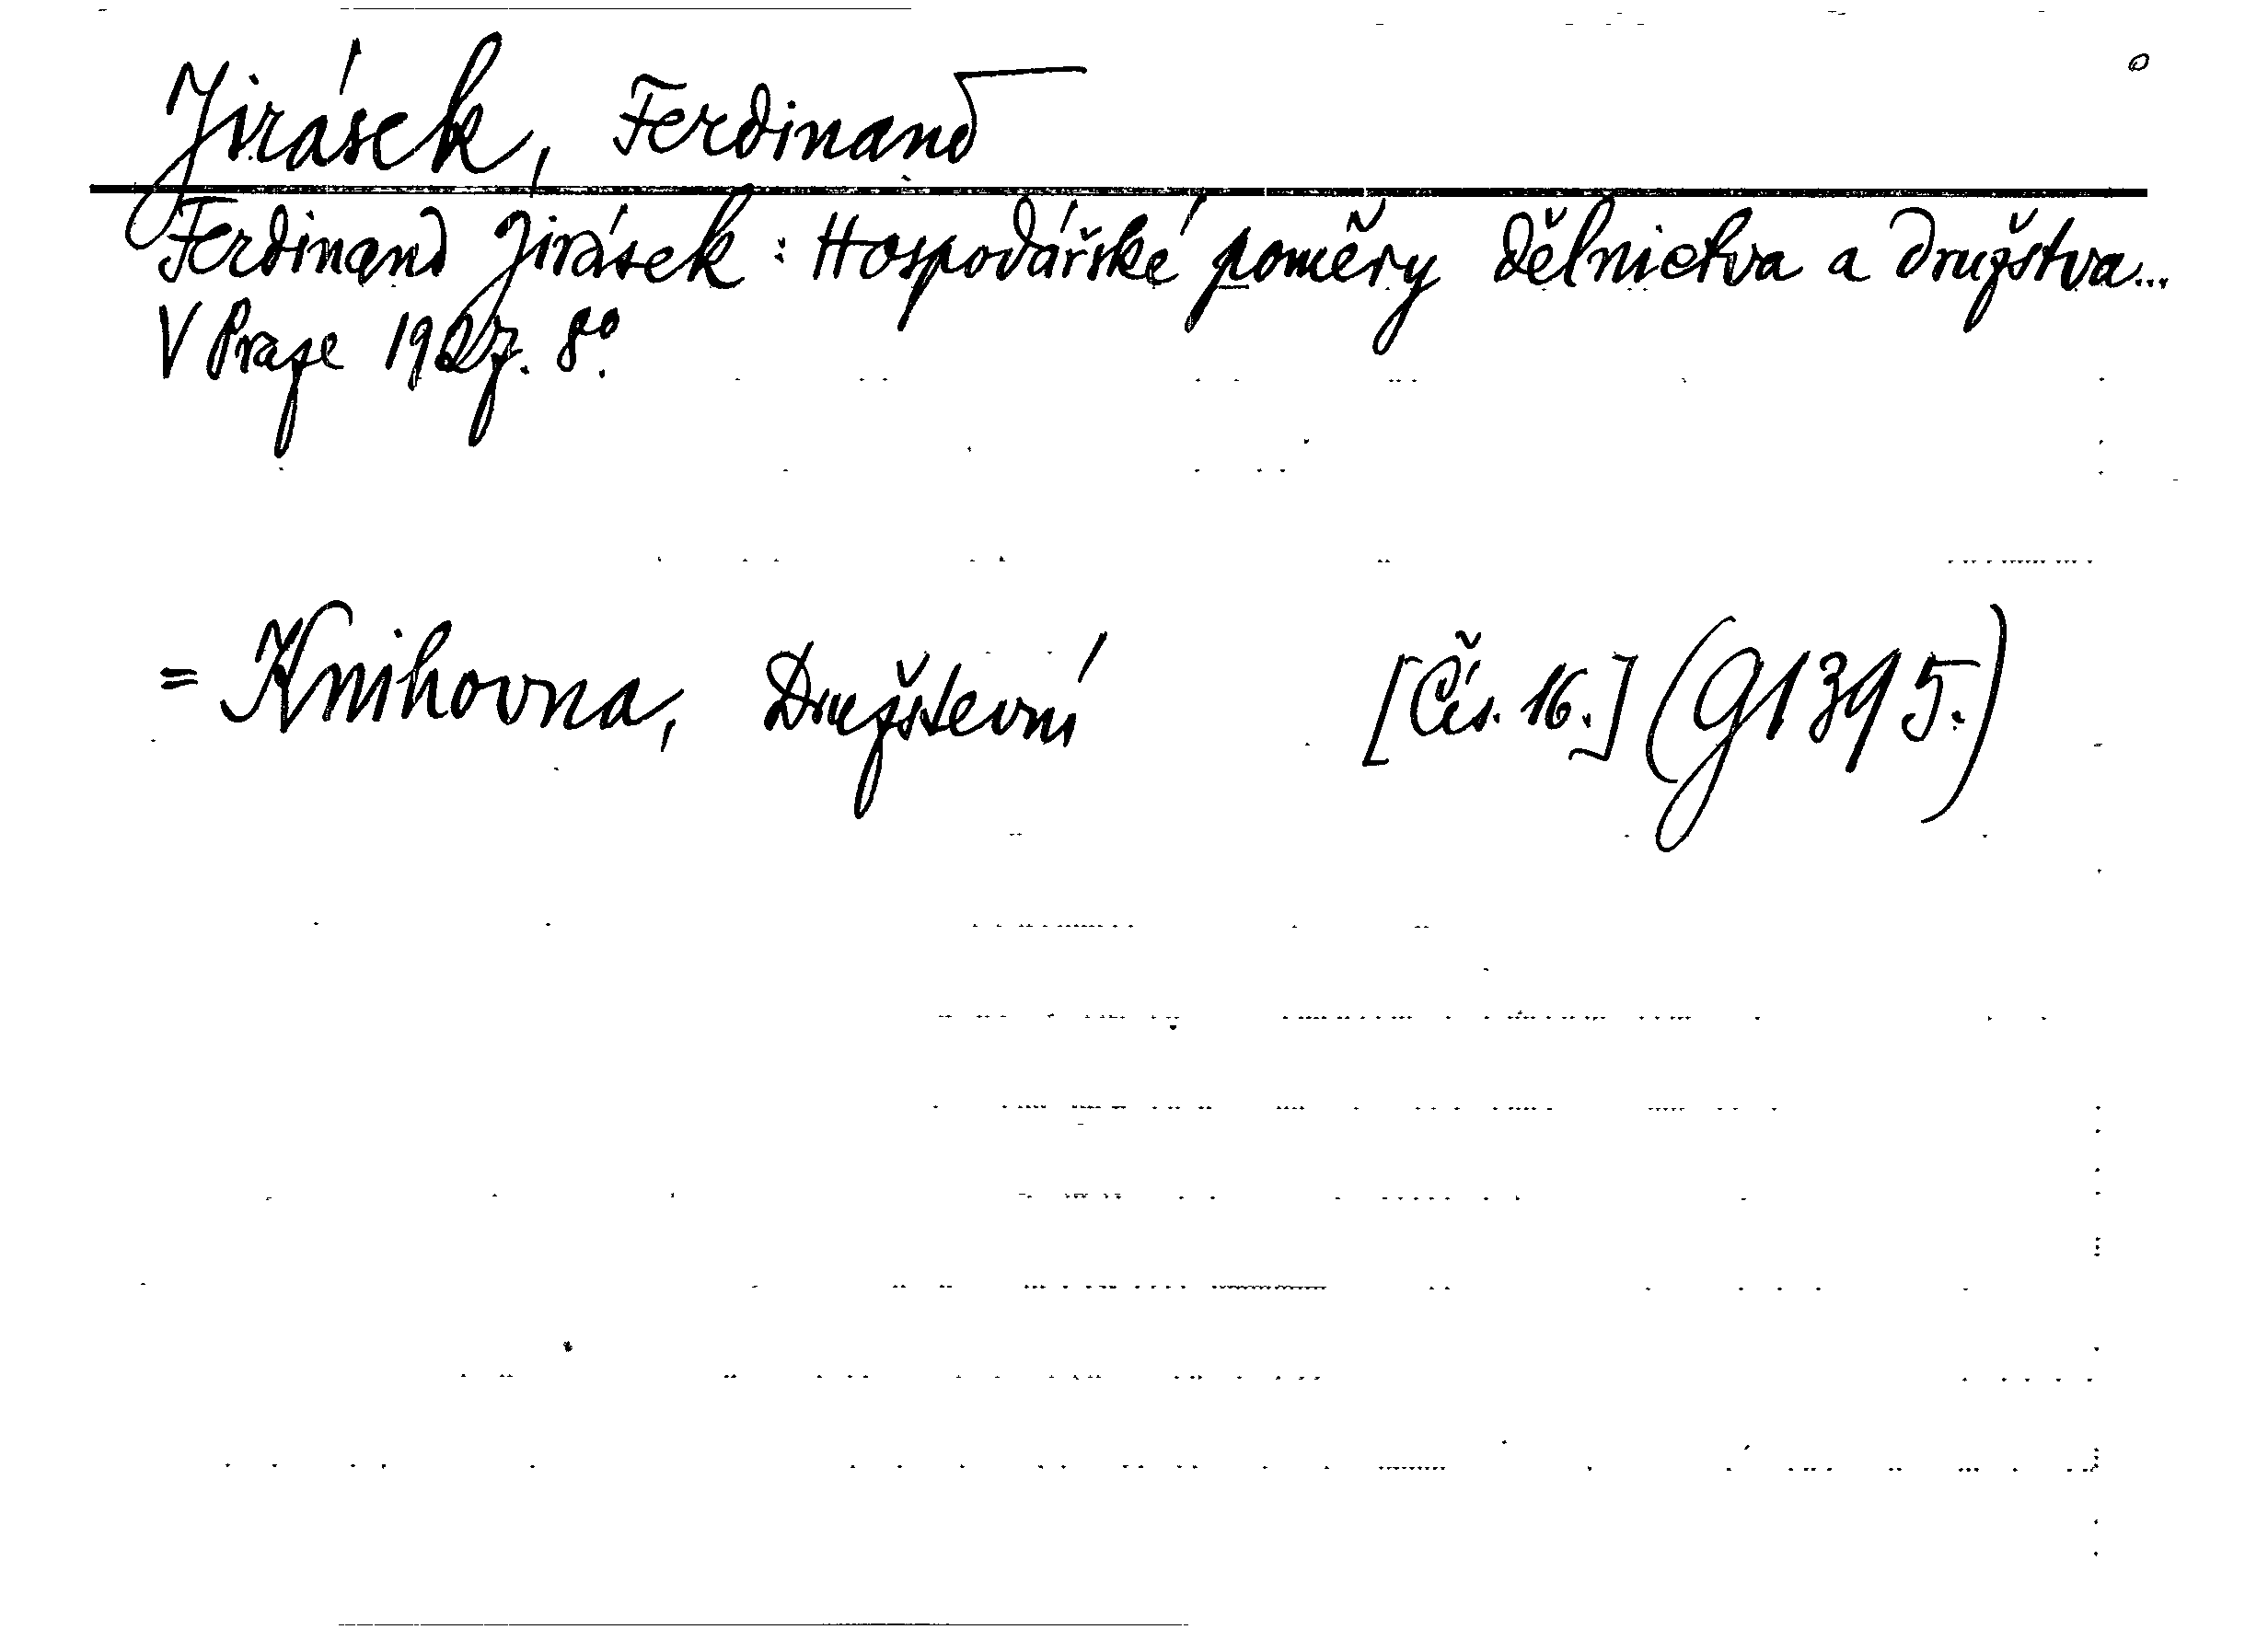 Jirásek, Ferdinand
Ferdinand Jirásek : Hospodářské poměry dělnictva a družstva...
V Praze 1927. 8°.
= Knihovna, Družstevní [Čís. 16.] (G1395.)